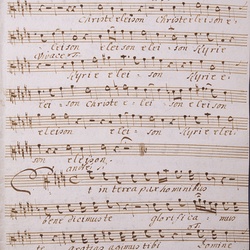 Christe eleison Christe eleison e
leison eleison eleison Kyrie
Kyrie elei son Kyrie e
lei son Christe elei son eleison
eleison eleison Kyrie elei
son eleison.
t in terra pax hominibus
bene dicimus te glorifica mus
te gratias agimus tibi Domine